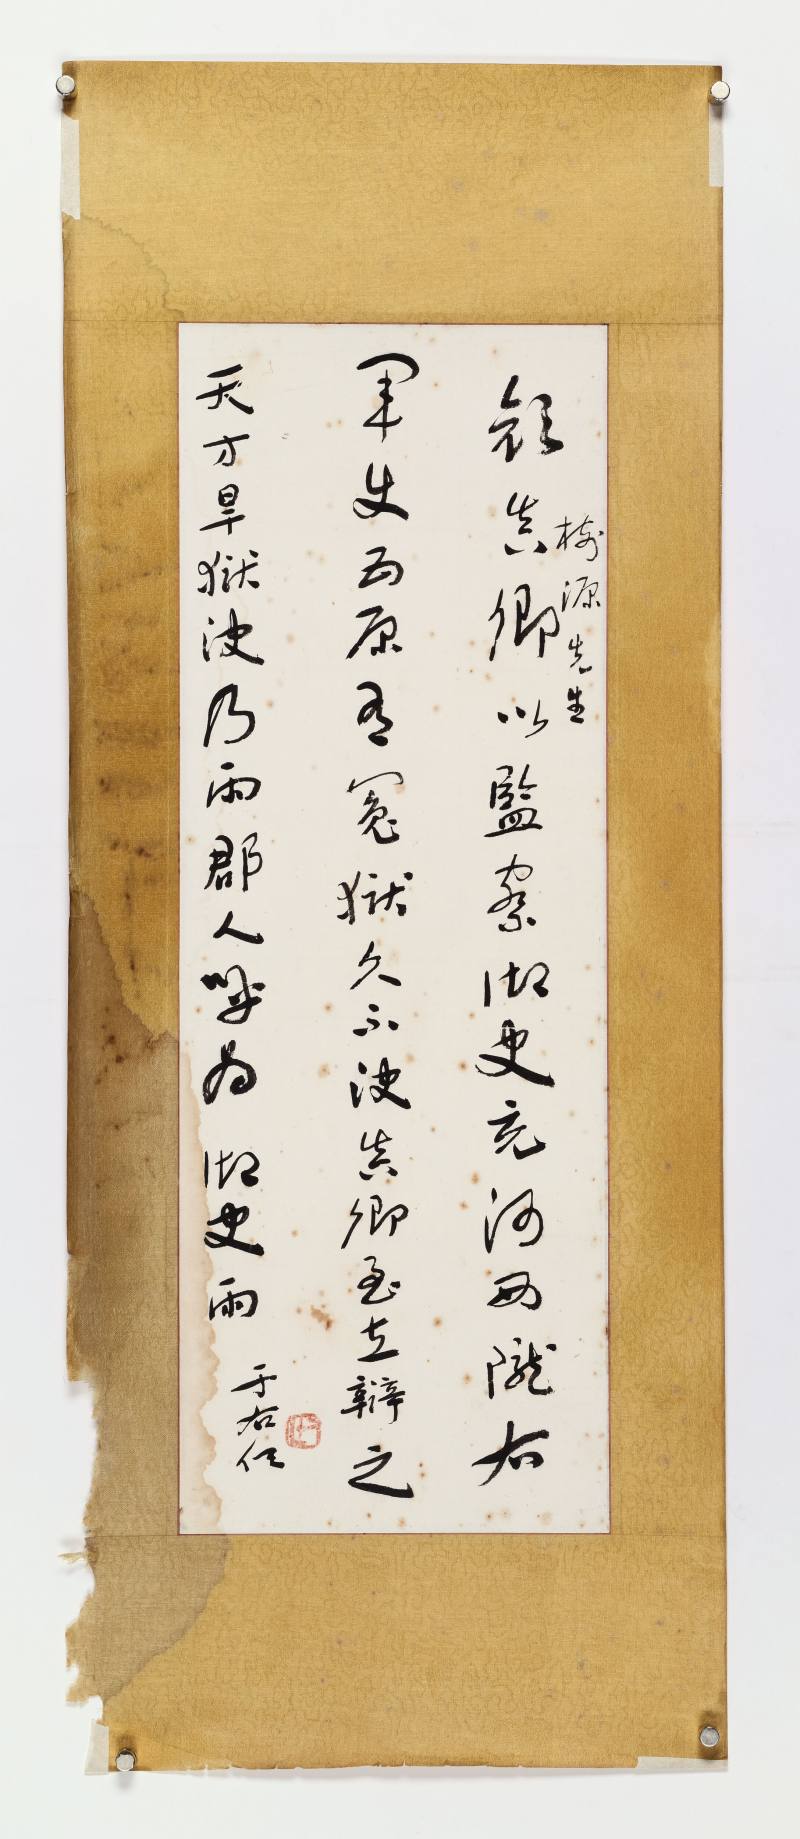 顏真卿以監察御史充河西隴右
樹源先生
軍史五原有冤獄久不決真卿至立辯之
天方旱獄決乃雨郡人呼為御史雨
于右任